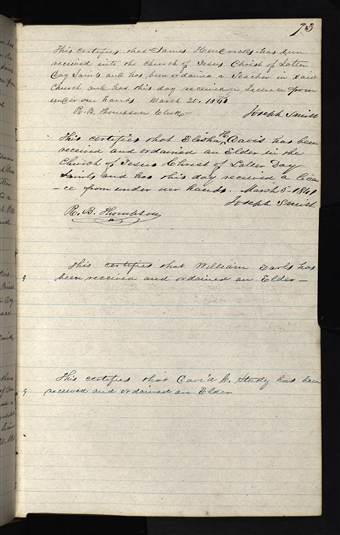 73
This certifies that James Hancock has been
received into the Church of Jesus Christ of Latter
Day Saints and has been ordained a Teacher in said
Church and has this day received a License from
under our hands March 20. 1841
R. B. Thompson Clerk Joseph Smith
This certifies that Elisha H. Davis has been
received and ordained an Elder in the
Church of Jesus Christ of Latter Day
Saints and has this day received a Licen
-ce from under our hands. March 5- 1841
Joseph Smith
R. B. Thompson
This certifies that William Earls has
been received and ordained an Elder—
This certifies that David H. has been
received and ordained an Elder